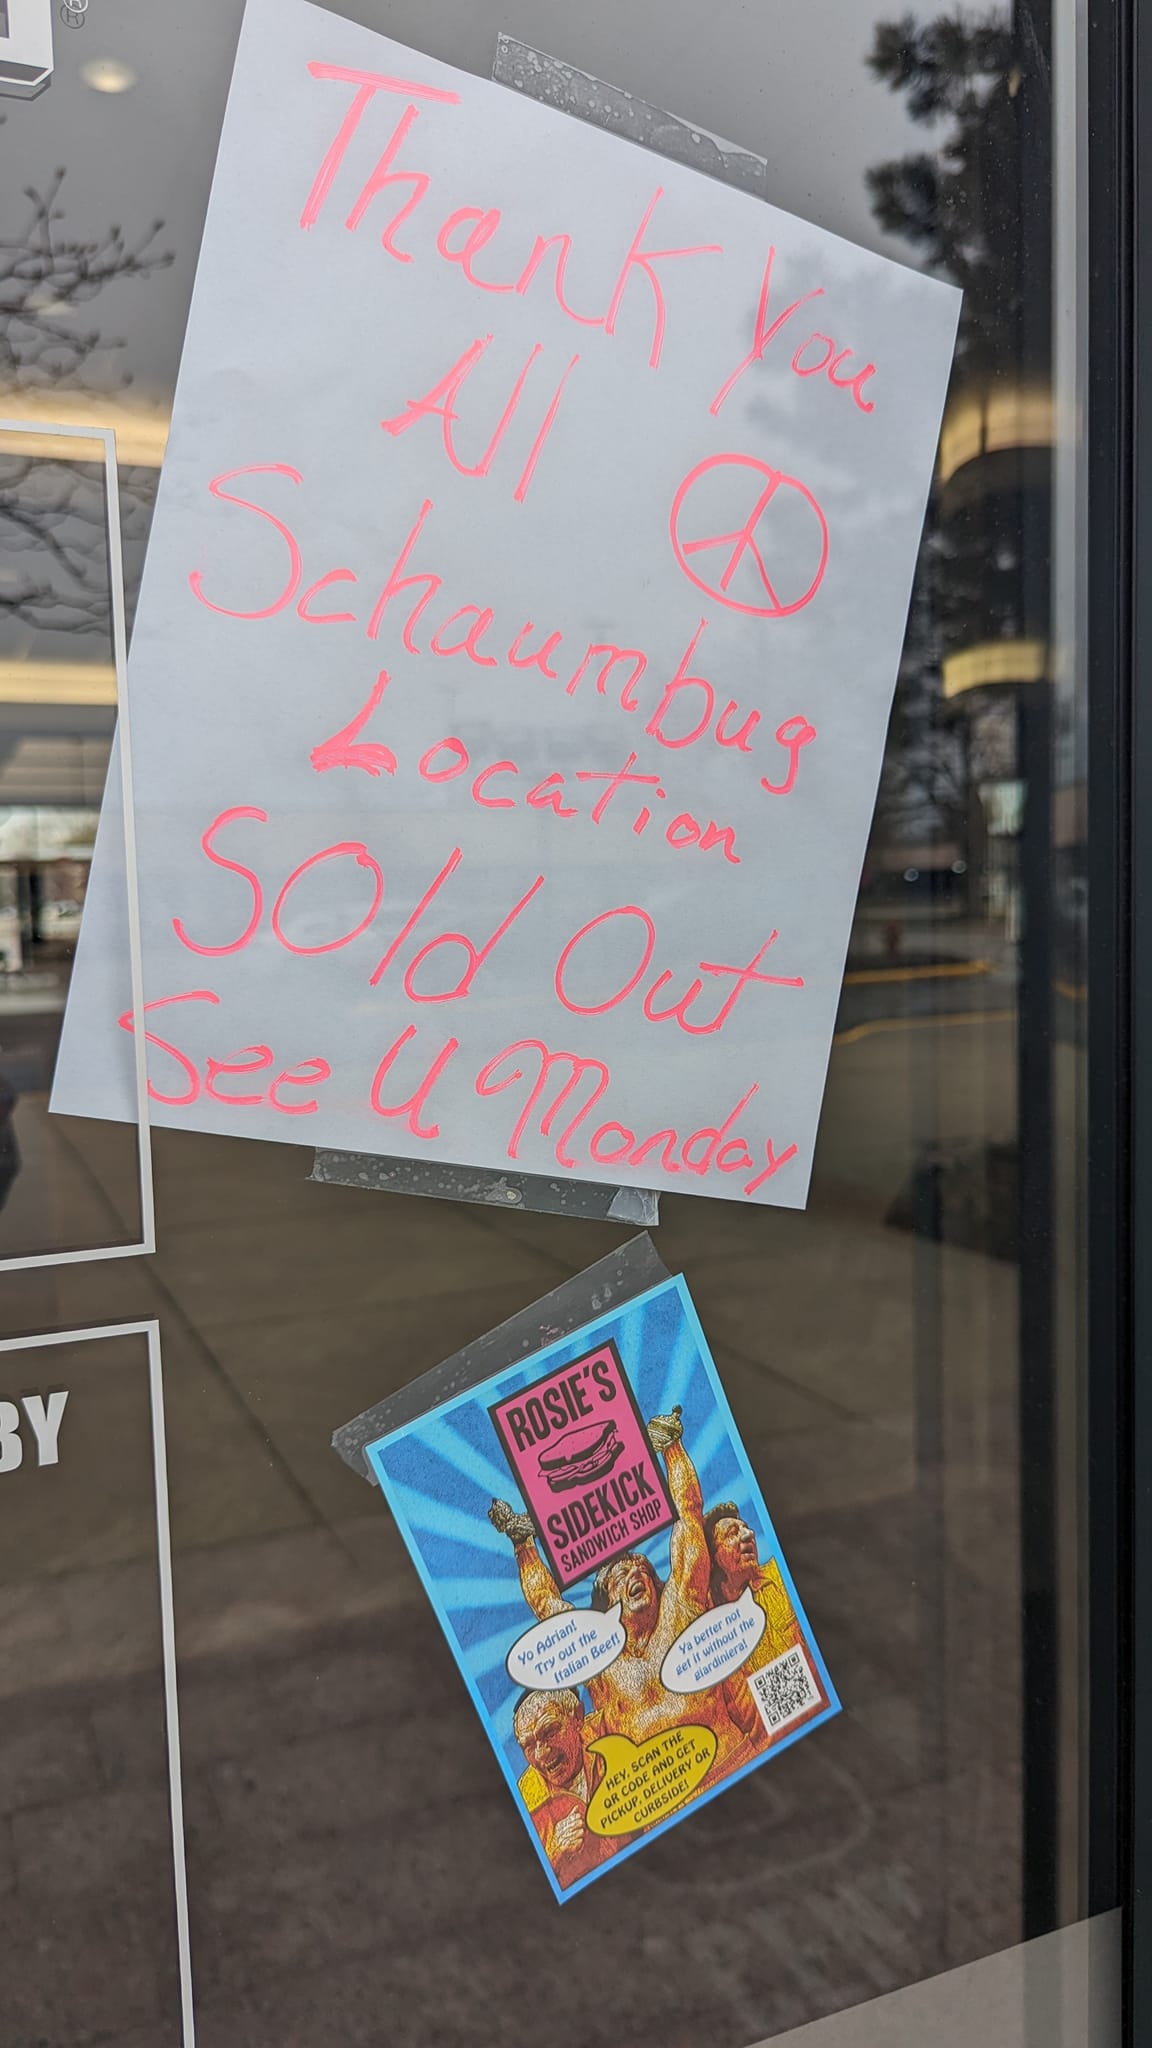 Thank You
All
Schaumbug
Location
SOld Out
See U Monday
BY
ROSIE'S
SIDEKICK
SANDWICH SHOP
Yo Adrian!
Try out the
Italian Beef!
Ya better not
get it without the
giardiniera!
HEY, SCAN THE
QR CODE AND GET
PICKUP, DELIVERY OR
CURBSIDE!
®